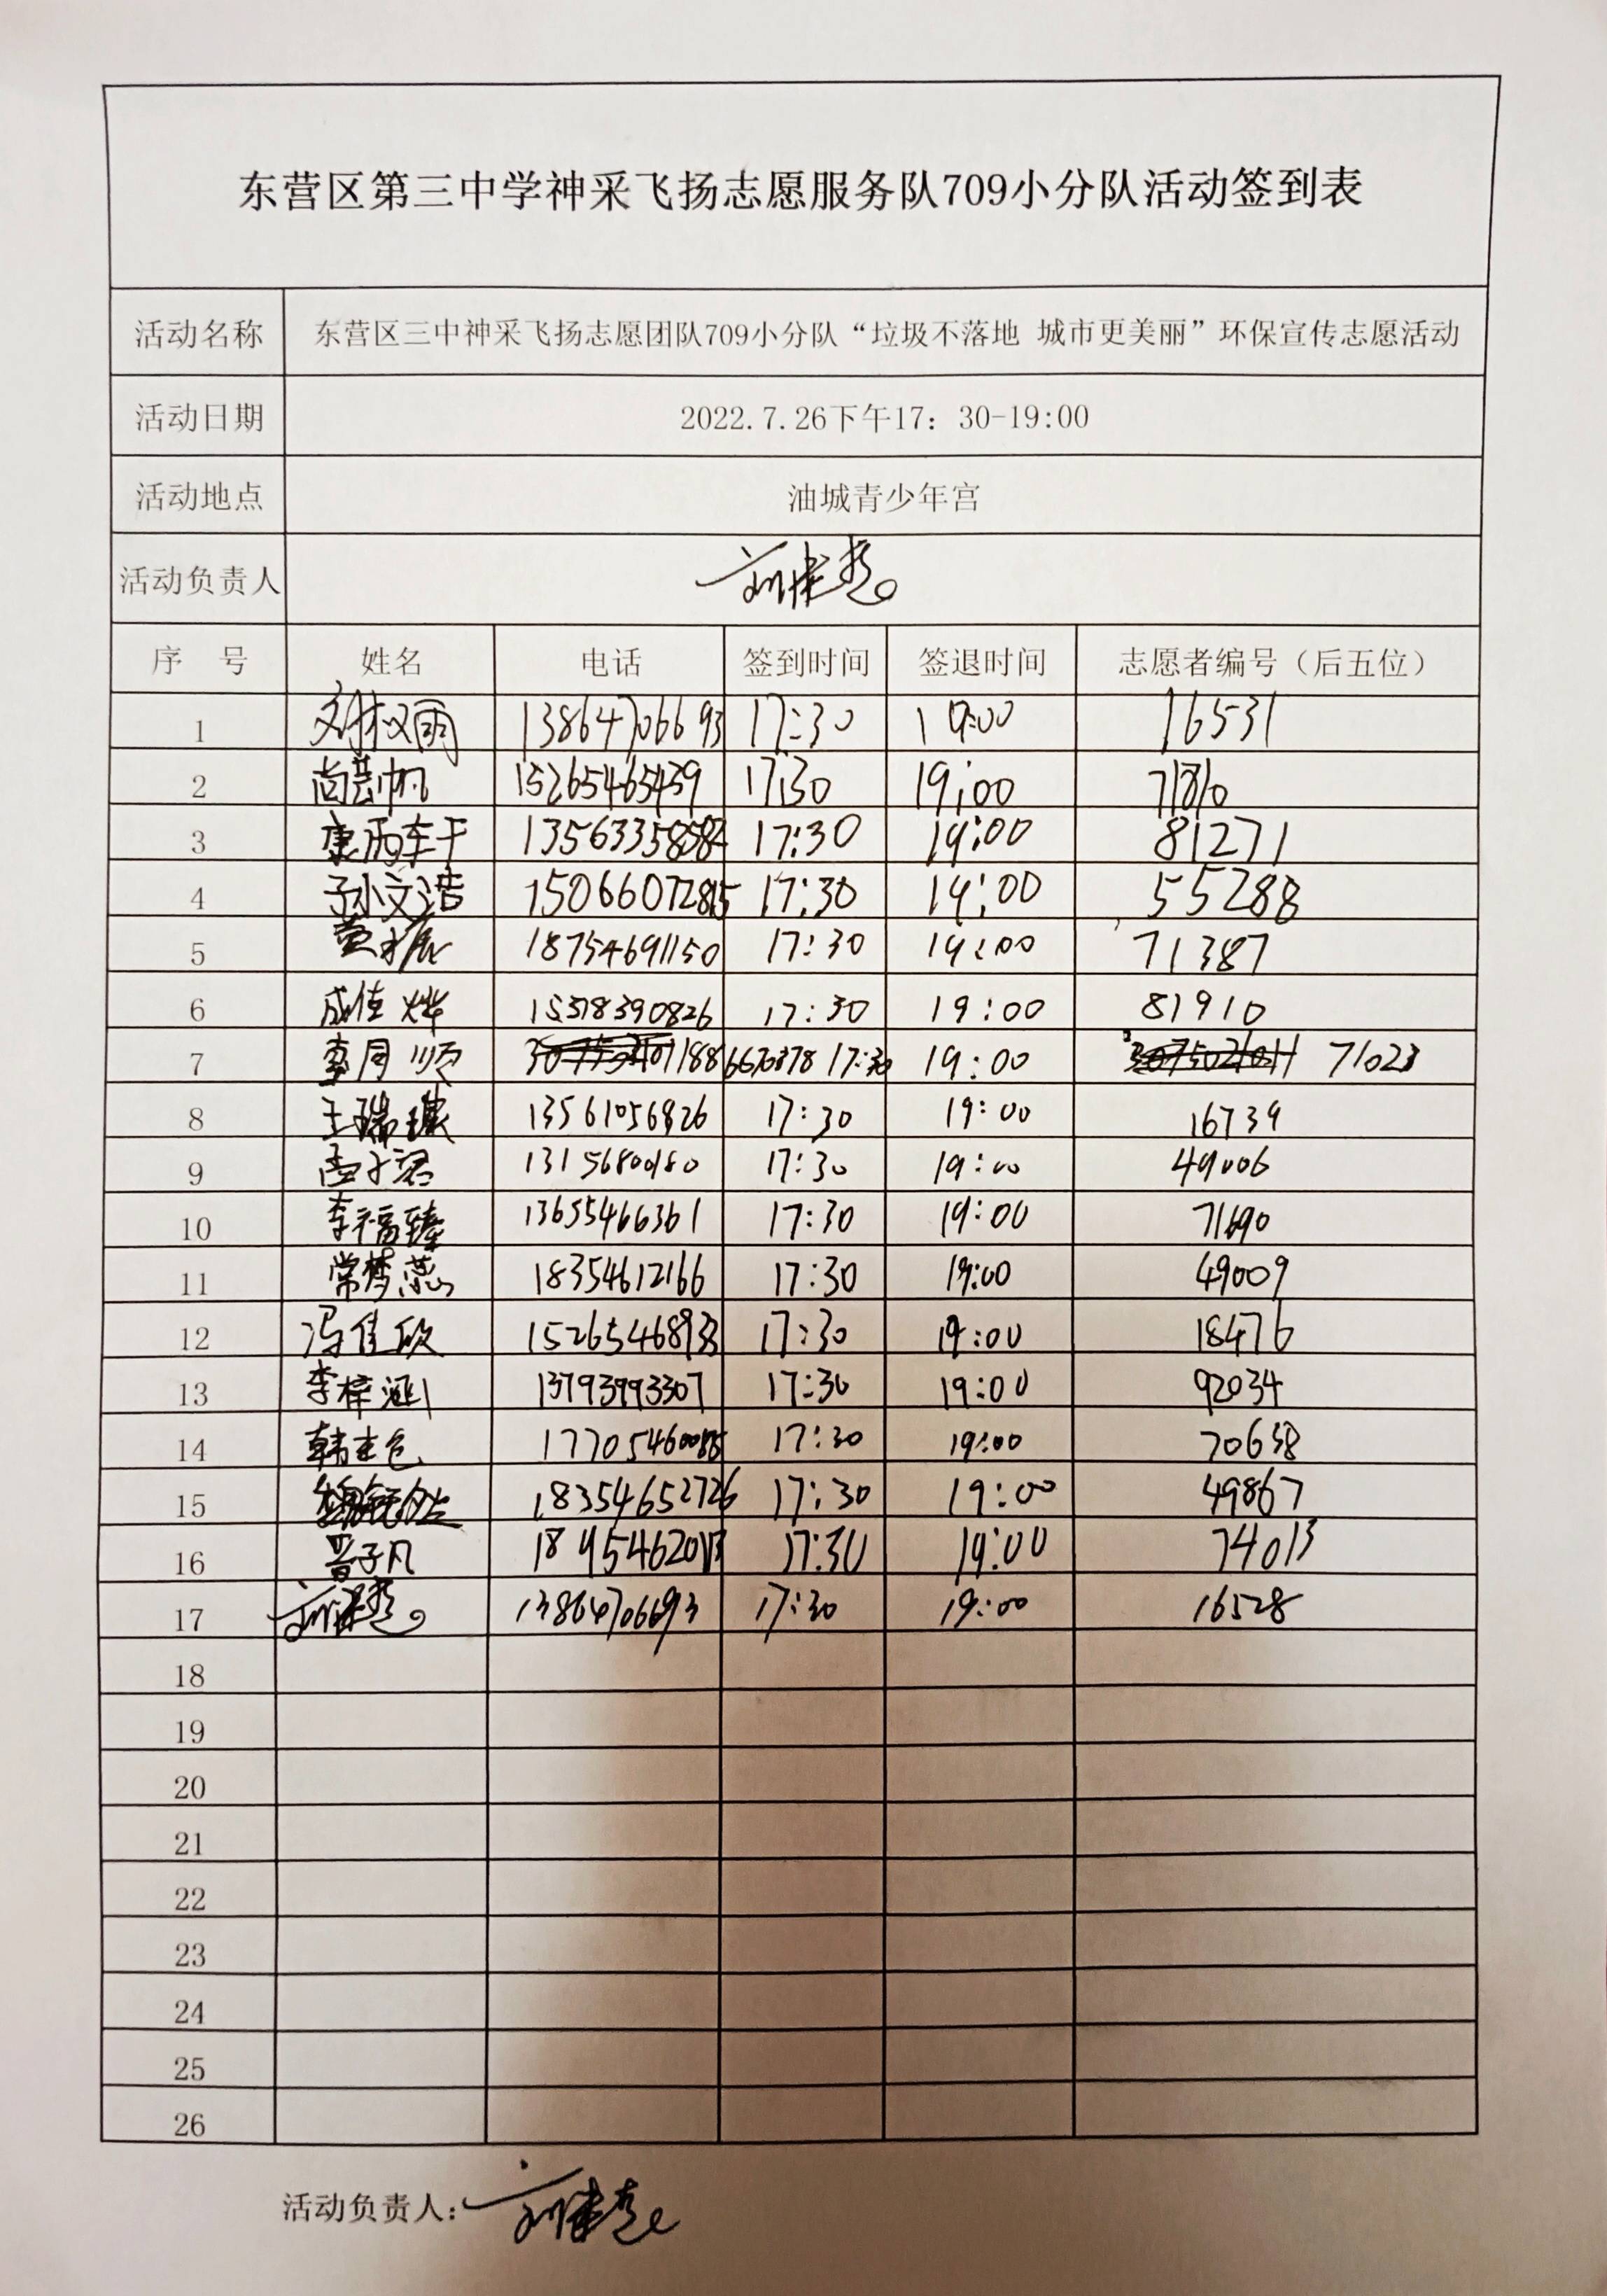 东营区第三中学神采飞扬志愿服务队709小分队活动签到表
活动名称 东营区三中神采飞扬志愿团队709小分队“垃圾不落地 城市更美丽”环保宣传志愿活动
活动日期 2022.7.26下午17：30-19:00
活动地点 油城青少年宫
活动负责人
序 号 姓名 电话 签到时间 签退时间 志愿者编号（后五位）
1 13864706693 17:30 19:00 16531
2 15265465439 17:30 19:00
3 17:30 19:00 81271
4 孙文浩 17:30 19:00 55288
5 18754691150 17:30 19:00 71387
6 17:30 19:00 81910
7 李同顺 17:30 19:00 71023
8 13561056826 17:30 19:00 16739
9 孟子君 17:30 19:00 49006
10 李福臻 13655466361 17:30 19:00 71690
11 常梦蕊 18354612166 17:30 19:00 49009
12 冯佳欣 17:30 19:00 18476
13 李梓涵 13793993307 17:30 19:00 92034
14 17:30 19:00 70638
15 18354652726 17:30 19:00 49867
16 晋子凡 17:30 19:00 74013
17 13864706693 17:30 19:00 16528
18
19
20
21
22
23
24
25
26
活动负责人：